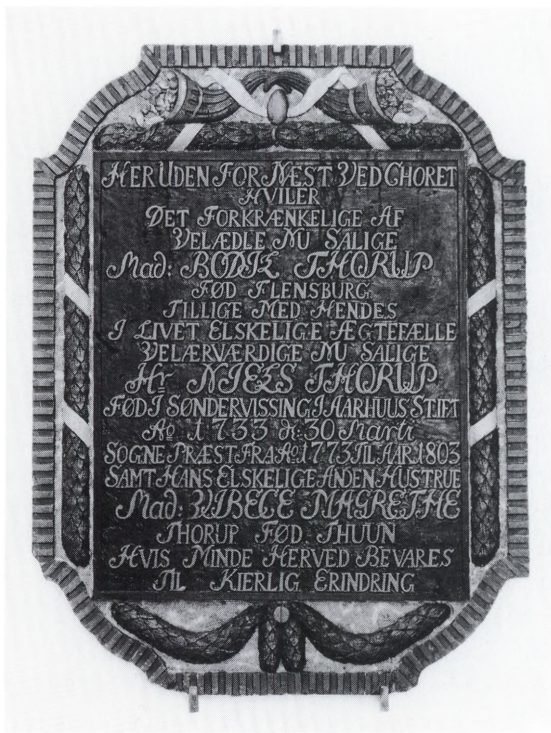 HER UDEN FOR NÆST VED CHORET
HVILER
DET FORKRÆNKELIGE AF
VELÆDLE NU SALIGE
Mad: BODIL THORUP
FØD FLENSBURG
TILLIGE MED HENDES
I LIVET ELSKELIGE ÆGTEFÆLLE
VELÆRVÆRDIGE NU SALIGE
Hr NIELS THORUP
FØD I SØNDERVISSING I AARHUUS STIFT
Ao 1733 d: 30 Marti
SOGNE PRÆST FRA Ao 1773 TIL AAR 1803
SAMT HANS ELSKELIGE ANDEN HUSTRUE
Mad: VIBECE MAGRETHE
THORUP FØD THUUN
HVIS MINDE HERVED BEVARES
TIL KIERLIG ERINDRING